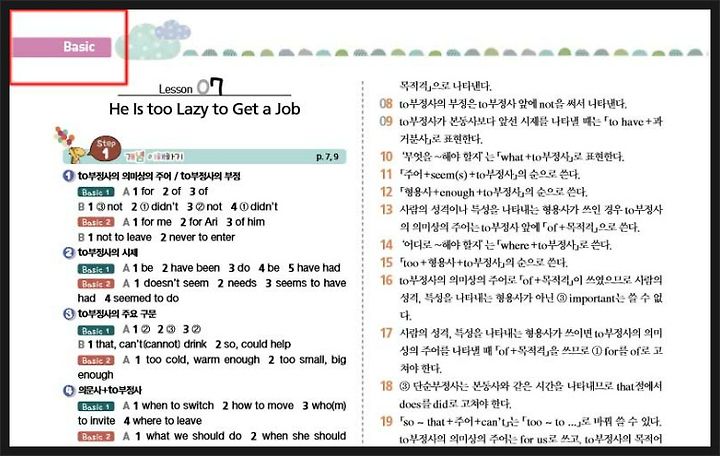 Basic
Lesson 07
He Is too Lazy to Get a Job
Step 1 개념 이해하기 p. 7, 9
1 to부정사의 의미상의 주어 / to부정사의 부정
Basic 1 A 1 for 2 of 3 of
B 1 ③ not 2 ① didn't 3 ② not 4 ① didn't
Basic 2 A 1 for me 2 for Ari 3 of him
B 1 not to leave 2 never to enter
2 to부정사의 시제
Basic 1 A 1 be 2 have been 3 do 4 be 5 have had
Basic 2 A 1 doesn't seem 2 needs 3 seems to have
had 4 seemed to do
3 to부정사의 주요 구문
Basic 1 A 1 ② 2 ③ 3 ②
B 1 that, can't(cannot) drink 2 so, could help
Basic 2 A 1 too cold, warm enough 2 too small, big
enough
4 의문사+to부정사
Basic 1 A 1 when to switch 2 how to move 3 who(m)
to invite 4 where to leave
Basic 2 A 1 what we should do 2 when she should
목적격」으로 나타낸다.
08 to부정사의 부정은 to부정사 앞에 not을 써서 나타낸다.
09 to부정사가 본동사보다 앞선 시제를 나타낼 때는 「to have+과
거분사」로 표현한다.
10 '무엇을 ~해야 할지'는 「what+to부정사」로 표현한다.
11 「주어+seem(s)+to부정사」의 순으로 쓴다.
12 「형용사+enough+to부정사」의 순으로 쓴다.
13 사람의 성격이나 특성을 나타내는 형용사가 쓰인 경우 to부정사
의 의미상의 주어는 to부정사 앞에 「of+목적격」으로 쓴다.
14 '어디로 ~해야 할지'는 「where+to부정사」로 쓴다.
15 「too+형용사+to부정사」의 순으로 쓴다.
16 to부정사의 의미상의 주어로 「of+목적격」이 쓰였으므로 사람의
성격, 특성을 나타내는 형용사가 아닌 ③ important는 쓸 수 없
다.
17 사람의 성격, 특성을 나타내는 형용사가 쓰이면 to부정사의 의미
상의 주어를 나타낼 때 「of+목적격」을 쓰므로 ① for를 of로 고
쳐야 한다.
18 ③ 단순부정사는 본동사와 같은 시간을 나타내므로 that절에서
does를 did로 고쳐야 한다.
19 「so ~ that+주어+can't」는 「too ~ to ...」로 바꿔 쓸 수 있다.
to부정사의 의미상의 주어는 for us로 쓰고, to부정사의 목적어